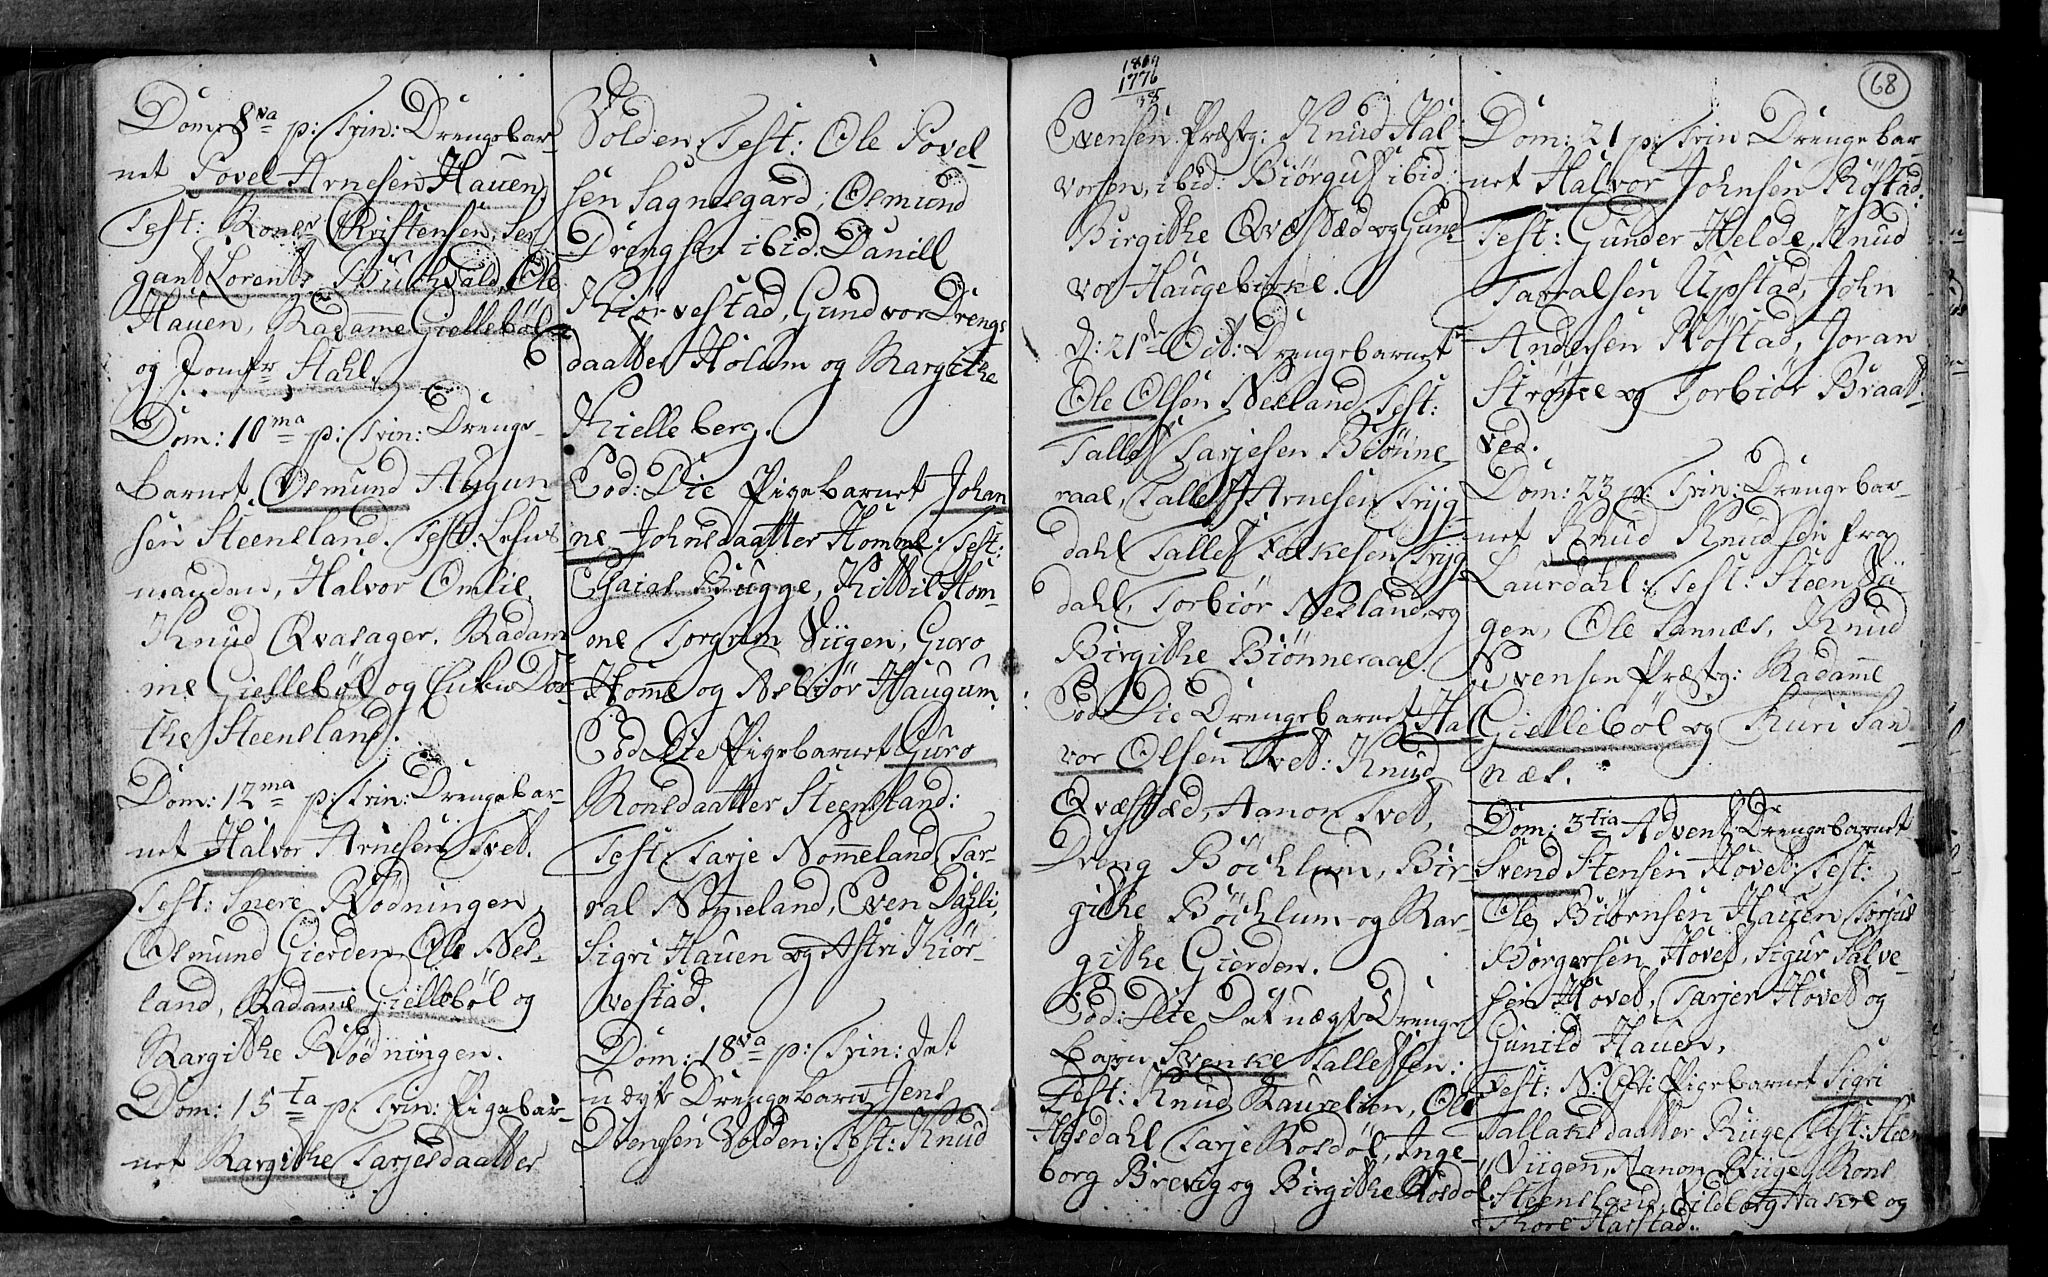 Dom: 8va p: Trin: Drengebar-
net Povel Arnesen Hauen,
Test: Christensen, Ser
gant Lorents Buchvald, Ole
Hauen, Madame Giellebøl
og Jomfr Stahl.
Dom: 10ma p: Trin: Drenge-
barnet Osmund Augun
sen Steensland. Test: Lehns-
manden, Halvor Omlie,
Knud Qvasager. Madam
me Giellebøl og Dor-
the Steensland.
Dom: 12ma p: Trin: Drengebar-
net Halvor Arnesen Tvet.
Test: Snere Rødningen,
Osmund Gierden, Ole Nes-
land, Madame Giellebøl og
Margithe Rødningen.
Dom: 15ta p: Trin: Pigebar-
net Margithe Tarjesdaatter
Volden, Test: Ole Povel-
sen Sagnesgard, Osmund
Drengsen ibid. Daniel
Kiørvestad, Gundvor Drengs
daatter Holum og Margithe
Kielleberg.
Eod: Die Pigebarnet Johan
ne Johnsdaatter Homme: Test:
Esaias Bugge, Kittil Hom-
me Torgrim Viigen, Guro
Homme og Asbiør Haugum.
Eod Die Pigebarnet Guro
Monsdaatter Steensland:
Test: Tarje Nommeland, Tar-
ral Nommeland, Even Dahli,
Sigri Hauen og Astri Kiør-
vestad.
Dom: 18va p: Trin: det
uægte Drengebarn Jens
Drengsen Volden: Test: Knud
1807
1776
68
Evensen Præstg: Knud Hal-
vorsen, ibid: Biørgulf ibid:
Birgithe Qvæstæd og Gund-
vor Haugebirke.
d: 21de Oct: Drengebarnet
Ole Olson Nesland, Test:
Tallef Tarjesen Biønne-
raal, Tallef Arnesen Tryg-
dahl Tallef Folkesen Tryg
dahl, Torbiør Nesland og
Birgithe Biønneraal.
Eod: Die Drengebarnet Hal
vor Olsen Tvet: Knud
Qvæstæd, Aanon Tvet,
Dreng Bøchlum, Bir-
githe Bøchlum og Mar-
githe Gierden.
Eod: Die Det uægte Drenge
barn Svenke Tallefsen:
Test: Knud Maurelien, Ole
Aasdahl Tarje Rosdøl, Inge-
borg Brevig og Birgithe Rosdøl
Dom: 21 p: Trin Drengebar-
net Halvor Johnsen Røstad.
Test: Gunder Helde, Knud
Tarralsen Upstad, John
Andersen Røstad, Joran
Strøme og Torbiør Braat-
ved.
Dom: 23 p: Trin: Drengebar-
net Knud Knudsen fra
Laurdahl: Test: Steen Vii
gen, Ole Sannæs, Knud
Evensen Præstg: Madame
Giellebøl og Turi San-
næs.
Dom: 3tia Advent: Drengebarnet
Svend Stensen Hovet: Test:
Ole Biørnsen Hauen Torjus
Børgersen Hovet, Sigur Salve-
sen Hovet, Tarjer Hovet og
Gunild Hauen,
Fest: N: Pigebarnet Sigri
Tallaksdaatter Rige Test: Steen
Viigen, Aanon Riige, Mons
Steensland, Sildborg Haskre og
Thore Harstad.